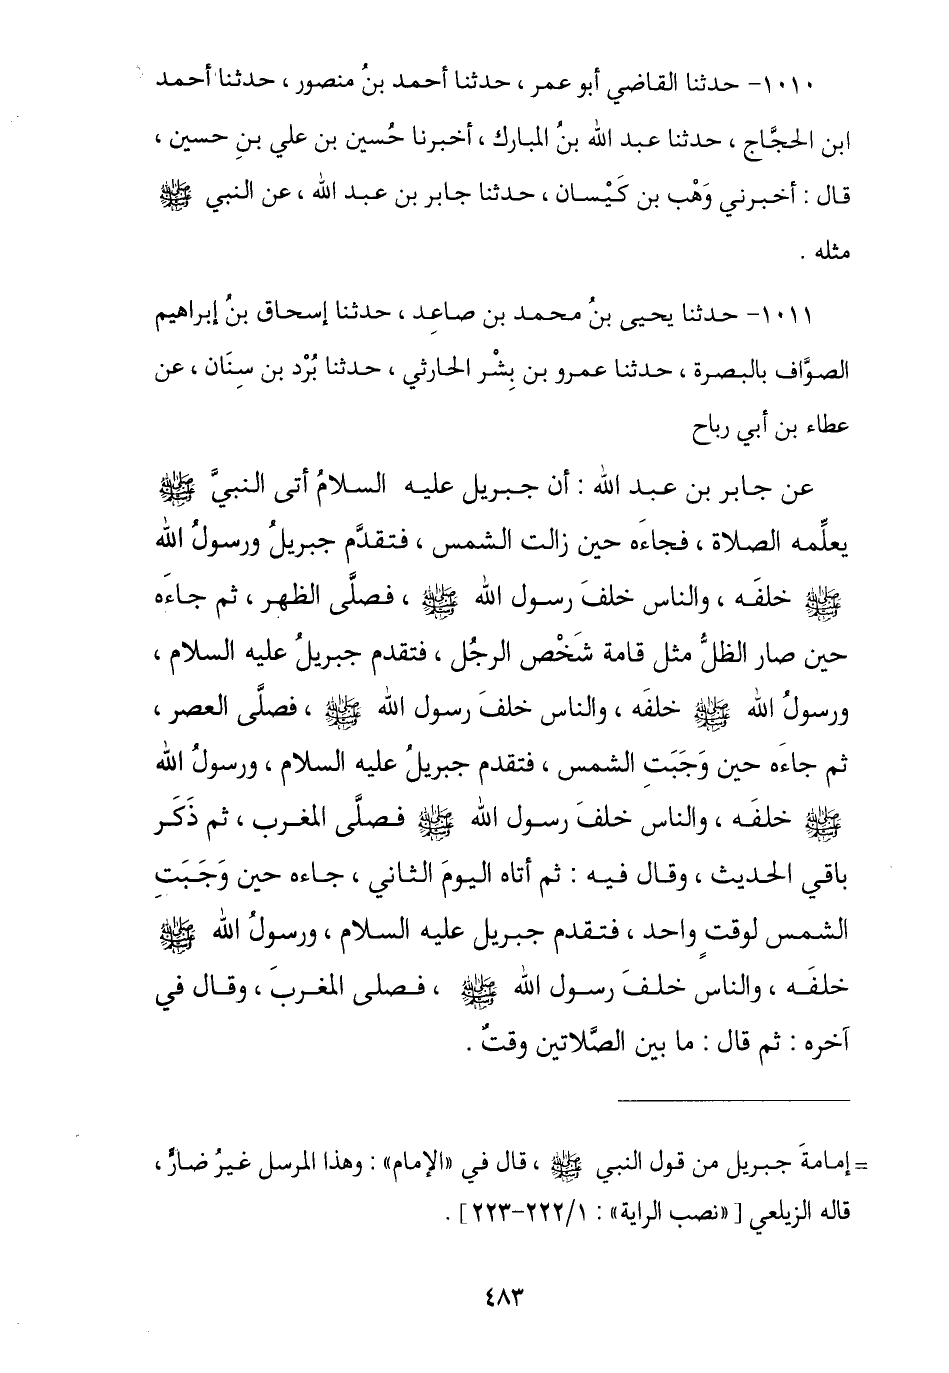 ١٠١٠- حدثنا القاضي أبو عمر ، حدثنا أحمد بنُ منصور ، حدثنا أحمد
ابن الحجَّاج ، حدثنا عبد الله بنُ المبارك ، أخبرنا حُسين بن علي بنِ حسين ،
قال : أخبرني وَهْب بن كَيْسان ، حدثنا جابر بن عبد الله ، عن النبي ﷺ
مثله .
١٠١١- حدثنا يحيى بنُ محمد بن صاعِد ، حدثنا إسحاق بنُ إبراهيم
الصوَّاف بالبصرة ، حدثنا عمرو بن بِشْر الحارثي ، حدثنا بُرْد بن سِنَان ، عن
عطاء بن أبي رباح
عن جابر بن عبد الله : أن جبريل عليه السلامُ أتى النبيَّ ﷺ
يعلِّمه الصلاة ، فجاءَه حين زالت الشمس ، فتقدَّم جبريلُ ورسولُ الله
ﷺ خلفَه ، والناس خلفَ رسول الله ﷺ ، فصلَّى الظهر ، ثم جاءَه
حين صار الظلُّ مثل قامة شَخْص الرجُل ، فتقدم جبريلُ عليه السلام ،
ورسولُ الله ﷺ خلفَه ، والناس خلفَ رسول الله ﷺ ، فصلَّى العصر ،
ثم جاءَه حين وَجَبَتِ الشمس ، فتقدم جبريلُ عليه السلام ، ورسولُ الله
ﷺ خلفَه ، والناس خلفَ رسول الله ﷺ فصلَّى المغرب ، ثم ذَكَر
باقي الحديث ، وقال فيه : ثم أتاه اليومَ الثاني ، جاءه حين وَجَبَتِ
الشمس لوقتٍ واحد ، فتقدم جبريل عليه السلام ، ورسولُ الله ﷺ
خلفَه ، والناس خلفَ رسول الله ﷺ ، فصلى المغربَ ، وقال في
آخره : ثم قال : ما بين الصَّلاتين وقتٌ .
= إمامةَ جبريل من قول النبي ﷺ ، قال في «الإمام» : وهذا المرسل غيرُ ضارٍّ ،
قاله الزيلعي [«نصب الراية» : ١/٢٢٢-٢٢٣] .
٤٨٣